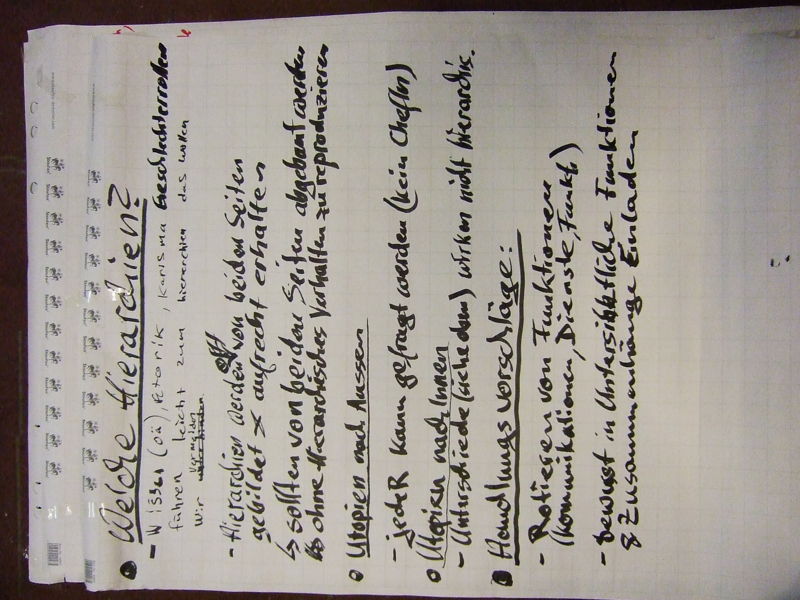 Welche Hierarchien?
- Wissen (öä), Retorik, Karisma Geschlechterrollen
führen leicht zum hierarchien das wollen
wir vermeiden
- Hierarchien werden oft von beiden Seiten
gebildet & aufrecht erhalten
↳ sollten von beiden Seiten abgebaut werden
↳ ohne Hierarchisches Verhalten zu reproduzieren
Utopien nach Aussen
- jedeR kann gefragt werden (kein ChefIn)
Utopien nach Innen
- Unterschiede (siehe oben) wirken nicht hierarchis.
Handlungsvorschläge:
- Rotieren von Funktionen
(Kommunikationen, Dienste, Funkt.)
- bewusst in Untersichtliche Funktionen
& Zusammenhänge Einladen